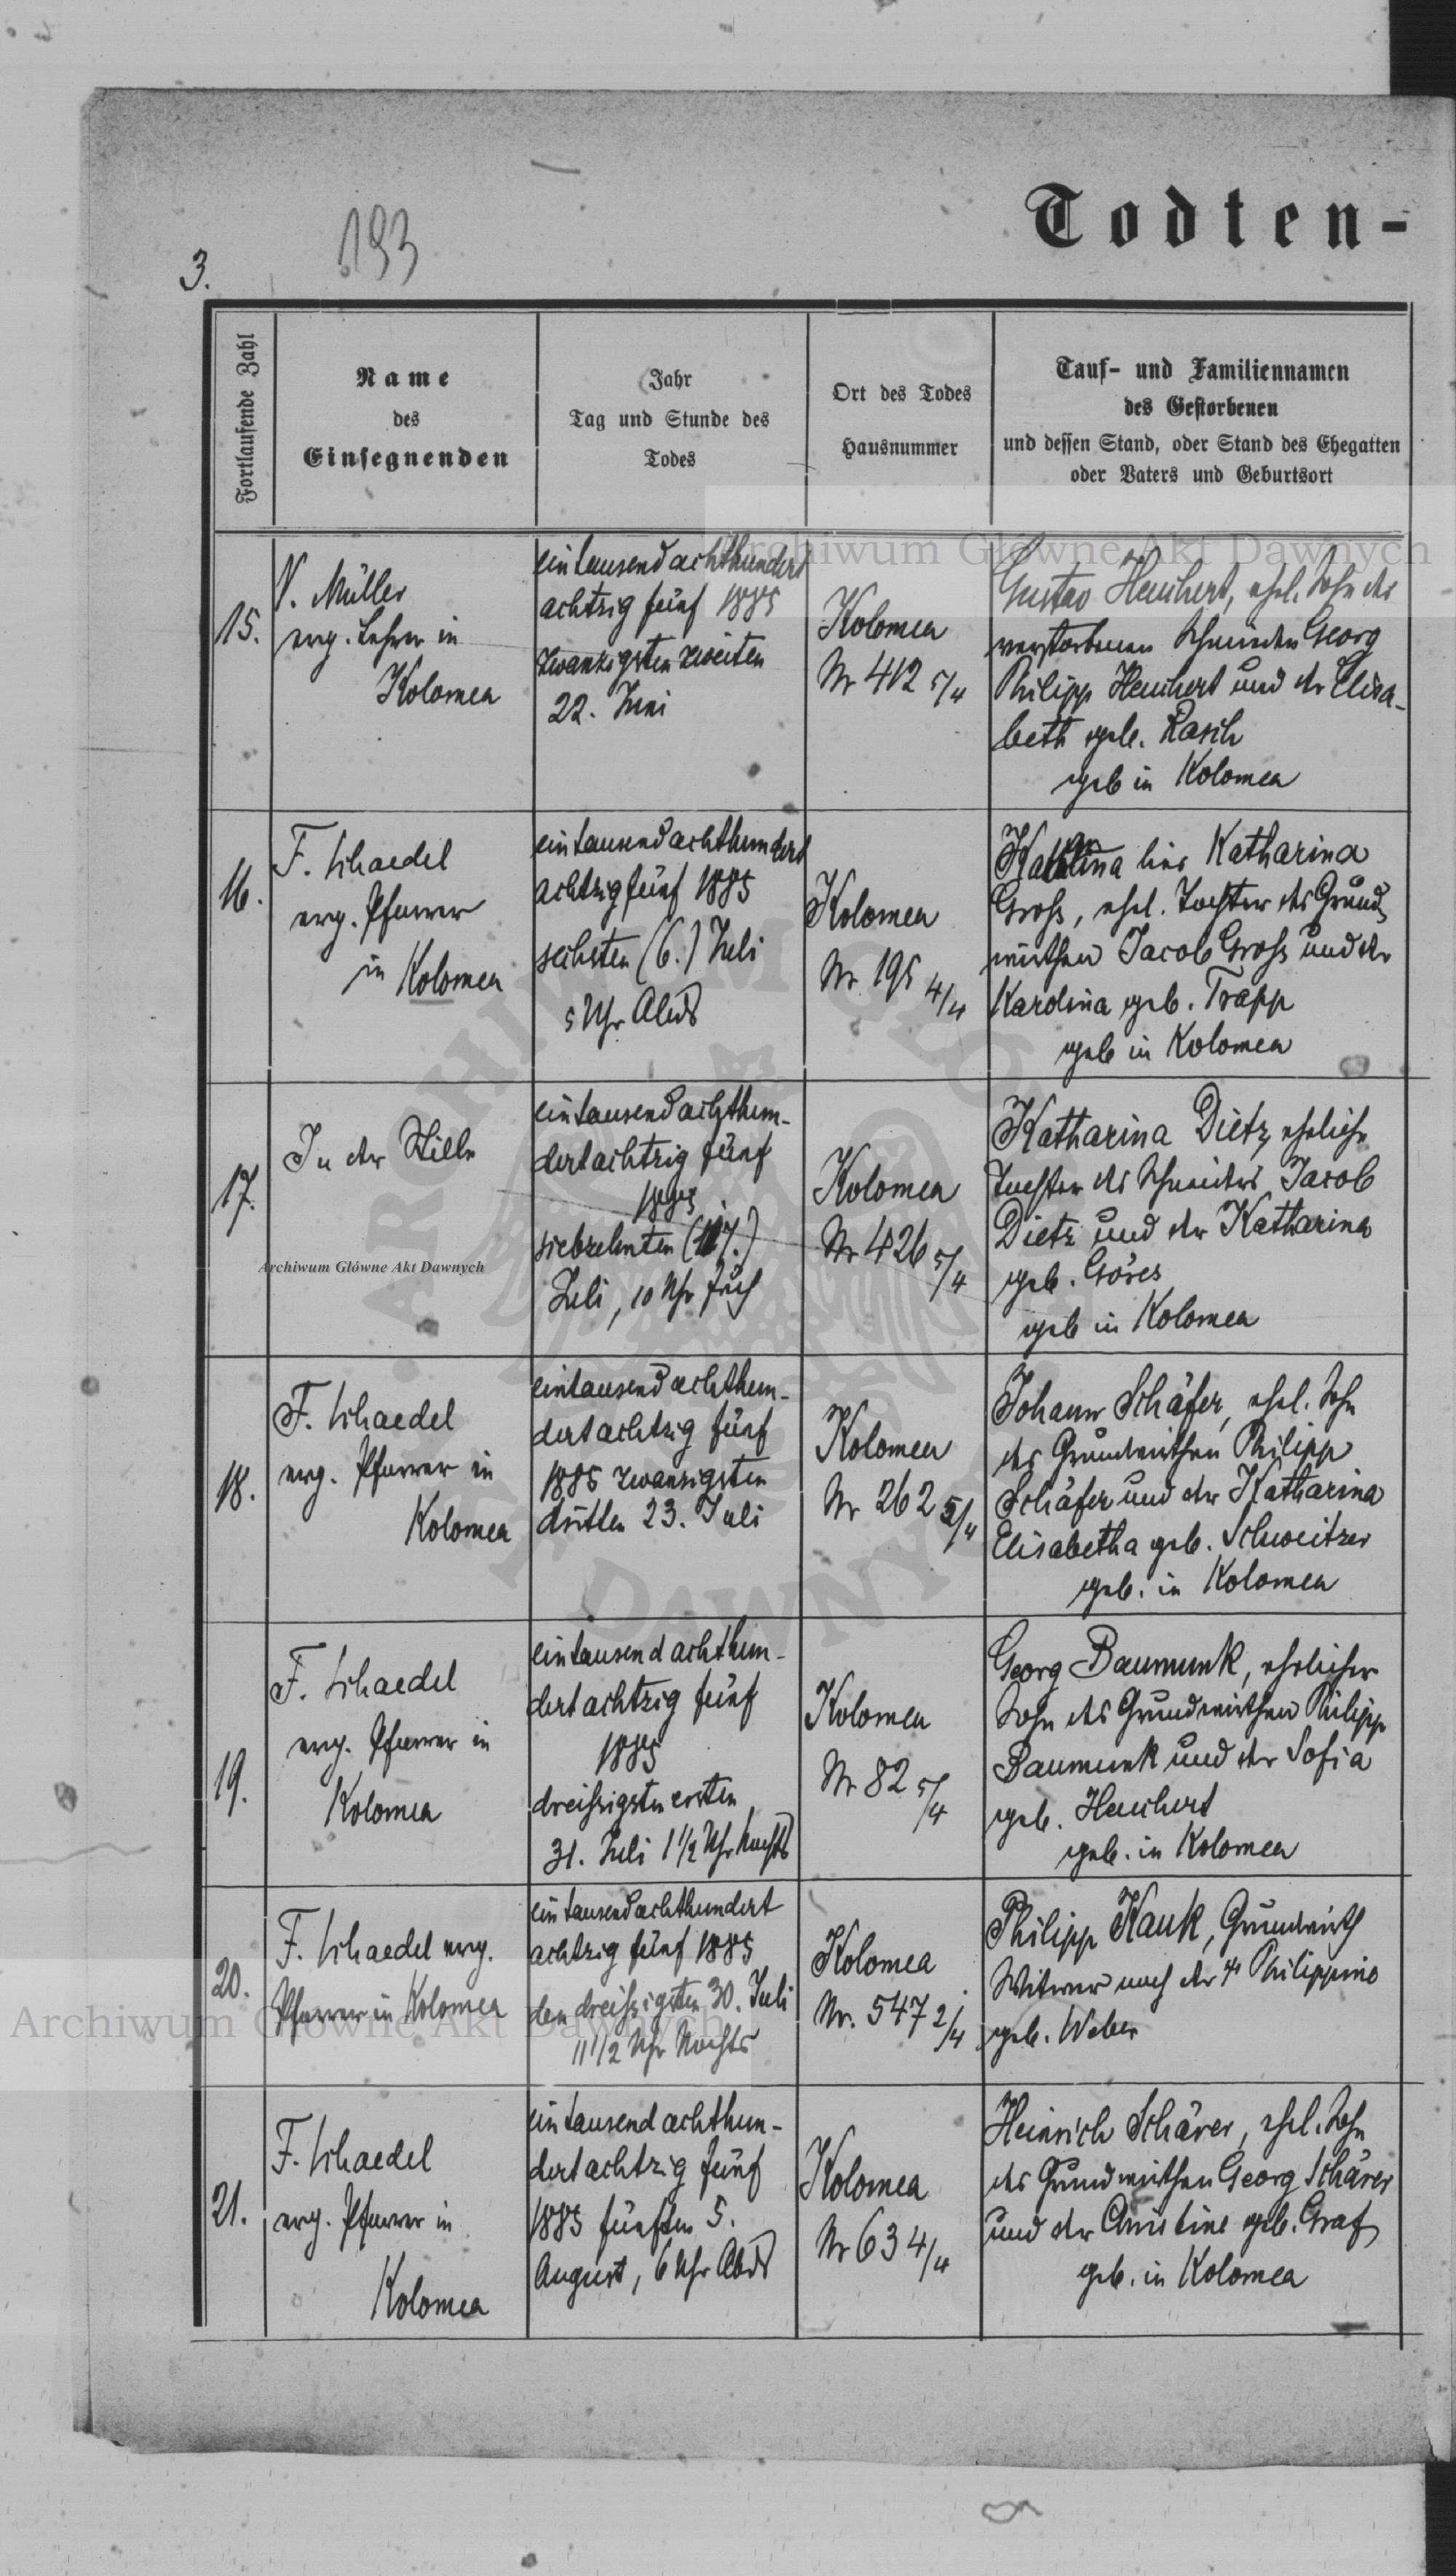 193
3.
Todten-
Fortlaufende Zahl
Name
des
Einsegnenden
Jahr
Tag und Stunde des
Todes
Ort des Todes
Hausnummer
Tauf- und Familiennamen
des Gestorbenen
und dessen Stand, oder Stand des Ehegatten
oder Vaters und Geburtsort
15.
V. Müller
evg. Lehrer in
Kolomea
eintausendachthundert
achtzig fünf 1885
zwanzigsten zweiten
22. Juni
Kolomea
Nr 412 5/4
Gustav Heuchert, ehel. Sohn des
verstorbenen Georg
Philipp Heuchert und der Elisa-
beth geb. Rasch
geb in Kolomea
16.
F. Schaedel
evg. Pfarrer
in Kolomea
eintausendachthundert
achtzigfünf 1885
sechsten (6.) Juli
5 Uhr Abds
Kolomea
Nr 195 4/4
lies Katharina
Groß, ehel. Tochter des Grund-
wirthen Jacob Groß und der
Karolina geb. Trapp
geb in Kolomea
17.
In der Stille
eintausendachthun-
dertachtzig fünf
1885
siebzehnten (17.)
Juli, 10 Uhr früh
Kolomea
Nr 426 5/4
Katharina Dietz, eheliche
Tochter des Schneiders Jacob
Dietz und der Katharina
geb. Göres
geb in Kolomea
18.
F. Schaedel
evg. Pfarrer in
Kolomea
eintausendachthun-
dertachtzig fünf
1885 zwanzigsten
dritten 23. Juli
Kolomea
Nr 262 5/4
Johann Schäfer, ehel. Sohn
des Grundwirthen Philipp
Schäfer und der Katharina
Elisabetha geb. Schweitzer
geb. in Kolomea
19.
F. Schaedel
evg. Pfarrer in
Kolomea
eintausendachthun-
dertachtzig fünf
1885
dreißigsten ersten
31. Juli 1 1/2 Uhr Nachts
Kolomea
Nr 82 5/4
Georg Baumunk, ehelicher
Sohn des Grundwirthen Philipp
Baumunk und der Sofia
geb. Heuchert
geb. in Kolomea
20.
F. Schaedel evg.
Pfarrer in Kolomea
eintausendachthundert
achtzig fünf 1885
den dreißigsten 30. Juli
11 1/2 Uhr Nachts
Kolomea
Nr. 547 2/4
Philipp Kauk, Grundwirth
Witwer nach der † Philippine
geb. Weber
21.
F. Schaedel
evg. Pfarrer in
Kolomea
eintausendachthun-
dertachtzig fünf
1885 fünften 5.
August, 6 Uhr Abds
Kolomea
Nr 63 4/4
Heinrich Schärer, ehel. Sohn
des Grundwirthen Georg Schärer
und der Christine geb. Graf
geb. in Kolomea
Archiwum Główne Akt Dawnych
Archiwum Główne Akt Dawnych
Archiwum Główne Akt Dawnych